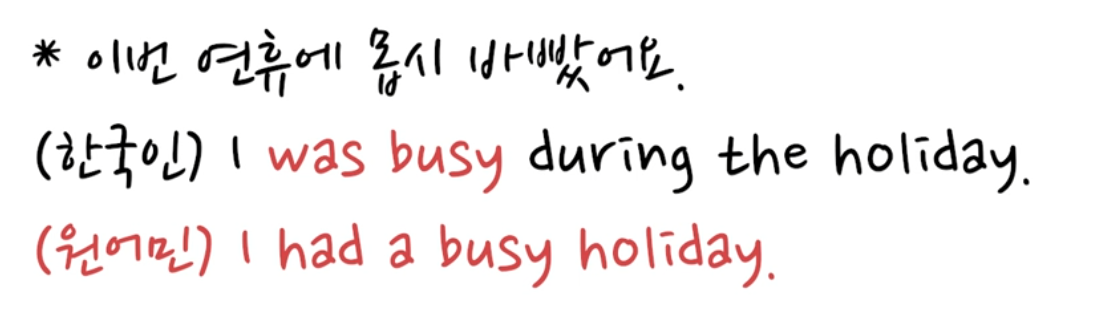 * 이번 연휴에 몹시 바빴어요.
(한국인) I was busy during the holiday.
(원어민) I had a busy holiday.